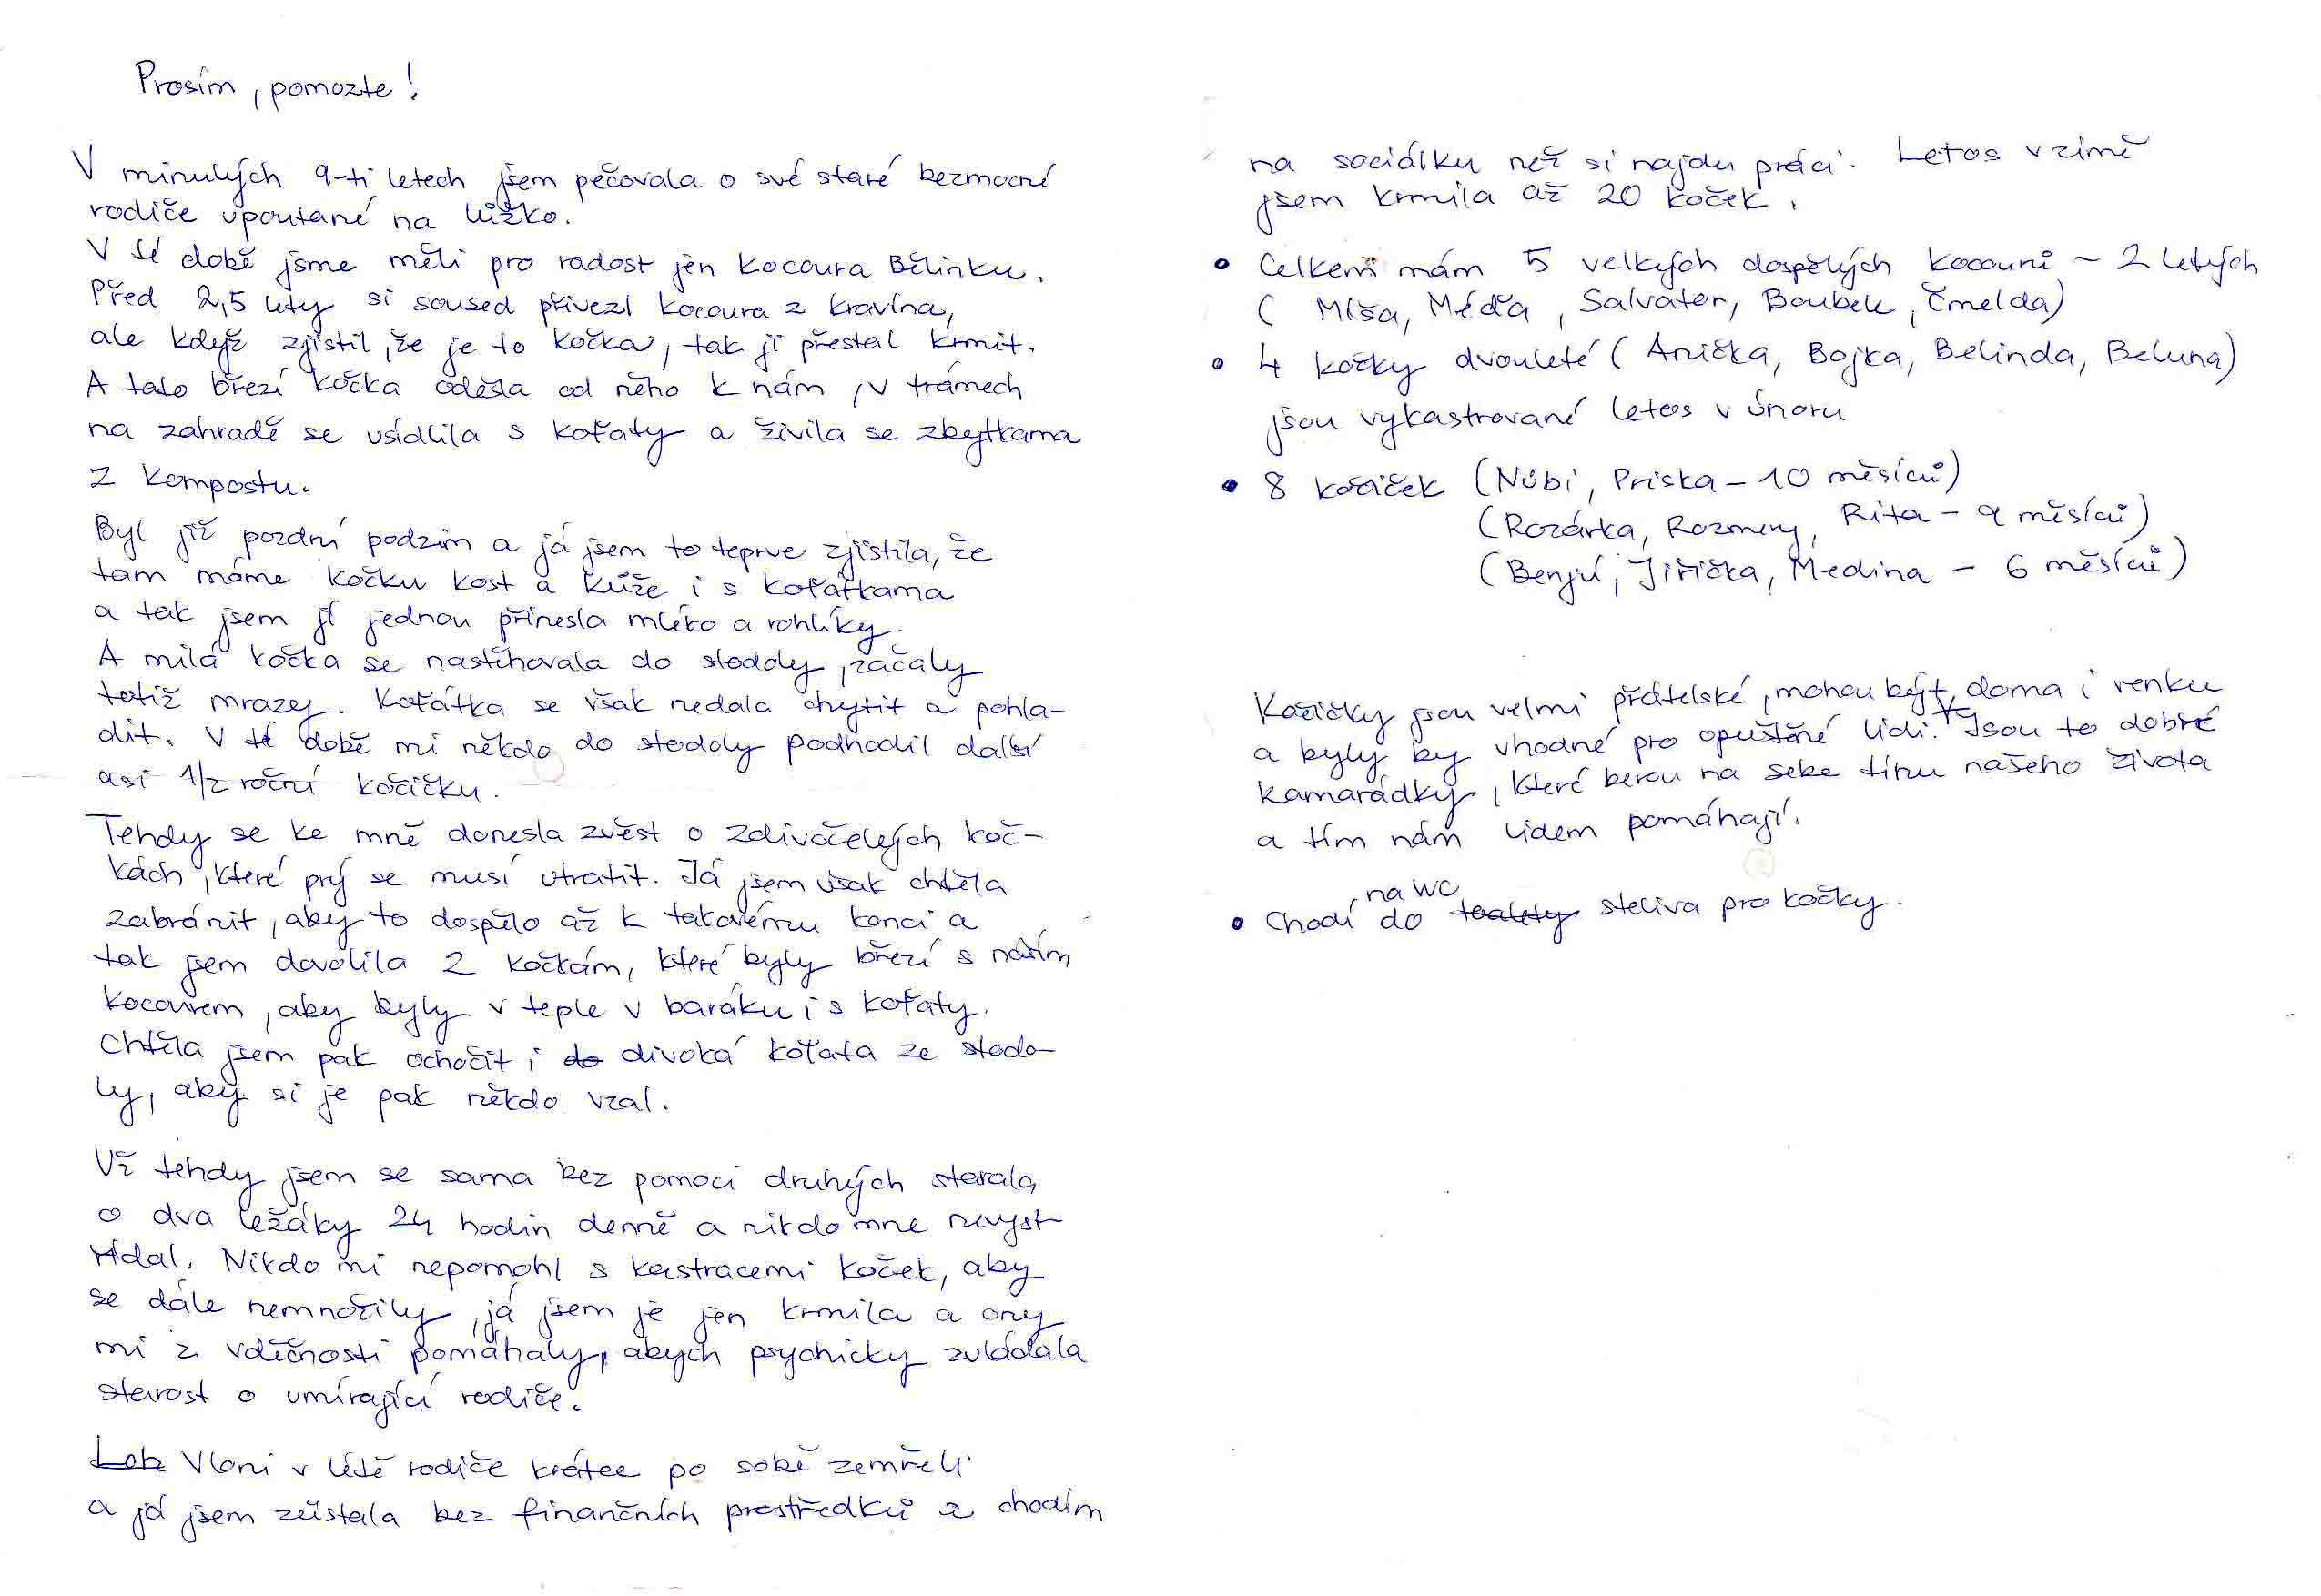 Prosím, pomozte!
V minulých 9-ti letech jsem pečovala o své staré bezmocné
rodiče upoutané na lůžko.
V té době jsme měli pro radost jen kocoura Bělinku.
Před 2,5 lety si soused přivezl kocoura z kravína,
ale když zjistil, že je to kočka, tak jí přestal krmit.
A tato březí kočka odešla od něho k nám, v trámech
na zahradě se usídlila s koťaty a živila se zbytkama
z kompostu.
Byl již pozdní podzim a já jsem to teprve zjistila, že
tam máme kočku kost a kůže i s koťátkama
a tak jsem jí jednou přinesla mléko a rohlíky.
A milá kočka se nastěhovala do stodoly, začaly
totiž mrazy. Koťátka se však nedala chytit a pohla-
dit. V té době mi někdo do stodoly podhodil další
asi 1/2 roční kočičku.
Tehdy se ke mně donesla zvěst o zdivočelých koč-
kách, které prý se musí utratit. Já jsem však chtěla
zabránit, aby to dospělo až k takovému konci a
tak jsem dovolila 2 kočkám, které byly březí s naším
kocourem, aby byly v teple v baráku i s koťaty.
Chtěla jsem pak ochočit i do divoká koťata ze stodo-
ly, aby si je pak někdo vzal.
Už tehdy jsem se sama bez pomoci druhých starala
o dva ležáky 24 hodin denně a nikdo mne nevyst
řídal. Nikdo mi nepomohl s kastracemi koček, aby
se dále nemnožily, já jsem je jen krmila a ony
mi z vděčnosti pomáhaly, abych psychicky zvládala
starost o umírající rodiče.
Vloni v létě rodiče krátce po sobě zemřeli
a já jsem zůstala bez finančních prostředků a chodím
na sociálku než si najdu práci. Letos v zimě
jsem krmila až 20 koček.
• Celkem mám 5 velkých dospělých kocourů - 2 letých
(Míša, Méďa, Salvator, Boubek, Čmelda)
• 4 kočky dvouleté (Anička, Bojka, Belinda, Beluna)
jsou vykastrované letos v únoru
• 8 kočiček (Núbi, Priska - 10 měsíců)
(Rozárka, Rozmery, Rita - 9 měsíců)
(Benjí, Jiřička, Medina - 6 měsíců)
Kočičky jsou velmi přátelské, mohou být doma i venku
a byly by vhodné pro opuštěné lidi. Jsou to dobré
kamarádky, které berou na sebe tíhu našeho života
a tím nám lidem pomáhají.
• Chodí na WC do toalety steliva pro kočky.